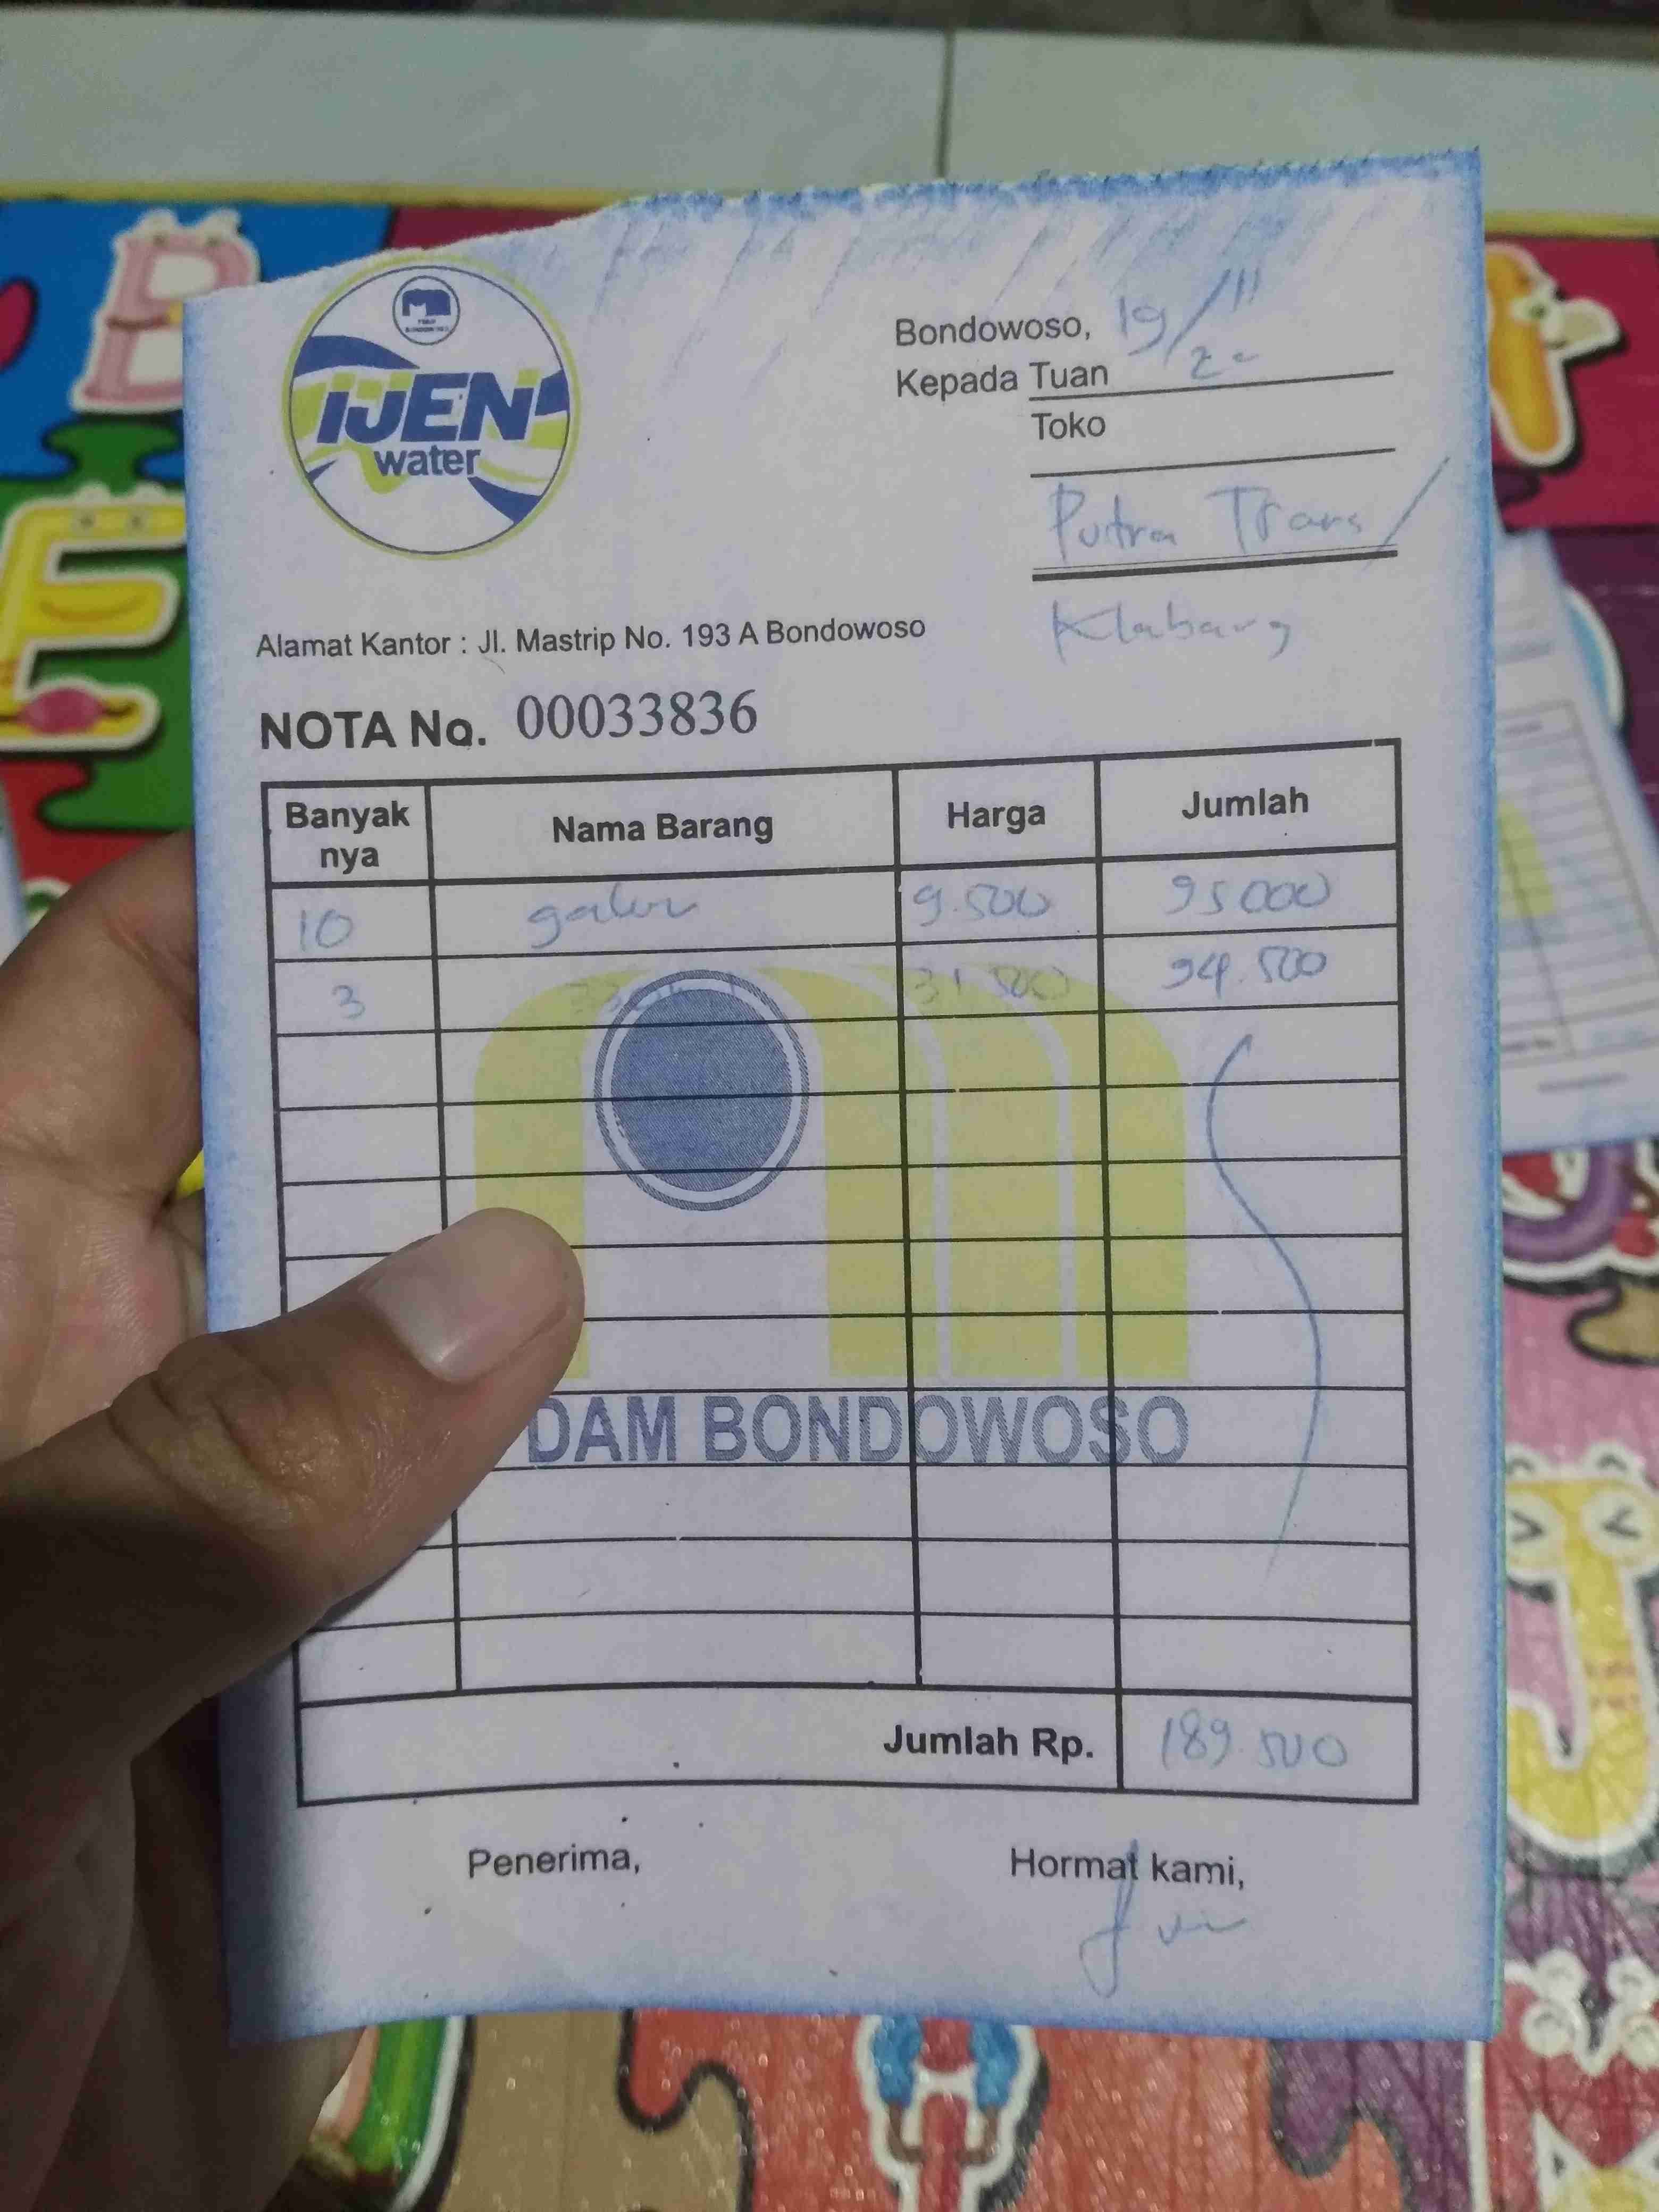 IJEN
water
Bondowoso, 19/11
20
Kepada Tuan
Toko
Putra Trans
Klabang
Alamat Kantor : Jl. Mastrip No. 193 A Bondowoso
NOTA No. 00033836
Banyak nya Nama Barang Harga Jumlah
10 galon 9.500 95000
3 31.500 94.500
DAM BONDOWOSO
Jumlah Rp. 189.500
Penerima, Hormat kami,